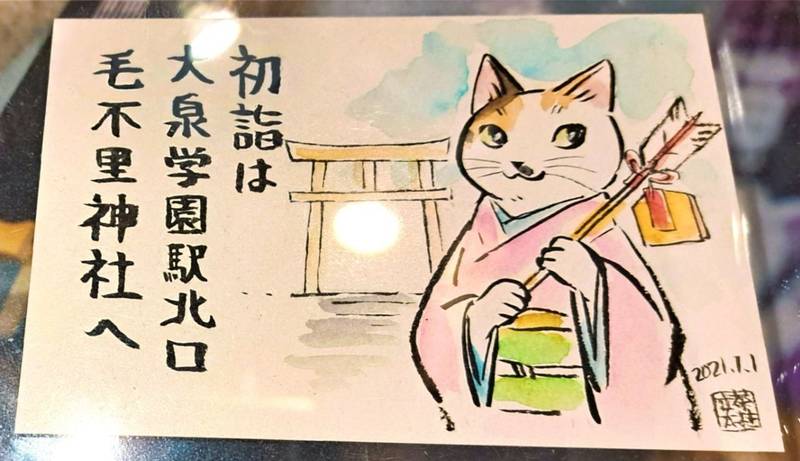 初詣は
大泉学園駅北口
毛不里神社へ
2021.1.1